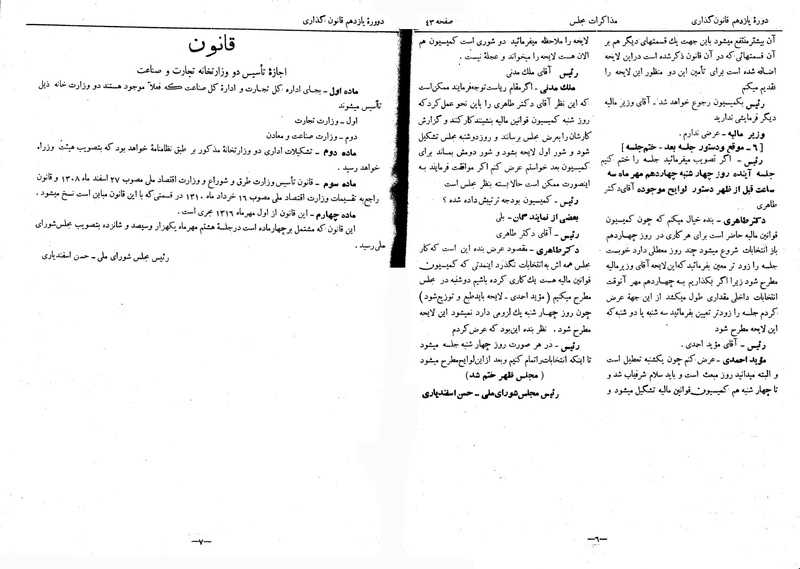 دورهٔ یازدهم قانون گذاری
مذاکرات مجلس
صفحه ۴۳
آن بیشتر منتفع میشود باین جهت یك قسمتهای دیگر هم بر
آن قسمتهائی که در آن قانون ذکر شده است در این لایحه
اضافه شده است برای تأمین این دو منظور این لایحه را
تقدیم میکنم
رئیس بکمیسیون رجوع خواهد شد - آقای وزیر مالیه
دیگر فرمایشی ندارید
وزیر مالیه - عرضی ندارم.
[ ۶ - موقع و دستور جلسه بعد - ختم جلسه ]
رئیس - اگر تصویب میفرمائید جلسه را ختم کنیم
جلسه آینده روز چهار شنبه چهاردهم مهر ماه سه
ساعت قبل از ظهر دستور لوایح موجوده آقای دکتر
طاهری
دکتر طاهری - بنده خیال میکنم که چون کمیسیون
قوانین مالیه حاضر است برای هر کاری در روز چهاردهم
باز انتخابات شروع میشود چند روز معطلی دارد خوبست
جلسه را زود تر معین بفرمائید که این لایحه آقای وزیر مالیه
مطرح شود زیرا اگر بگذاریم به چهاردهم مهر آنوقت
انتخابات داخلی مقداری طول میکشد از این جهة عرض
کردم جلسه را زودتر تعیین بفرمائید سه شنبه یا دو شنبه که
این لایحه مطرح شود
رئیس - آقای مؤید احمدی .
مؤید احمدی - عرض کنم چون یکشنبه تعطیل است
و البته میدانید روز مبعث است و باید سلام شرفیاب شد و
تا چهار شنبه هم کمیسیون قوانین مالیه تشکیل میشود و
لایحه را ملاحظه میفرمائید دو شوری است کمیسیون هم
الان هست لایحه را میخواند و عجلهٔ نیست .
رئیس آقای ملك مدنی
ملك مدنی - اگر مقام ریاست توجه فرمایند ممکن است
که این نظر آقای دکتر طاهری را باین نحو عمل کرد که
روز شنبه کمیسیون قوانین مالیه بنشینند کار کنند و گزارش
کارشان را بعرض مجلس برسانند و روز دوشنبه مجلس تشکیل
شود و شور اول لایحه بشود و شور دومش بماند برای
کمیسیون بعد خواستم عرض کنم اگر موافقت فرمایند به
اینصورت ممکن است حالا بسته بنظر مجلس است
رئیس - کمیسیون بودجه ترتیبش داده شده ؟
بعضی از نمایندگان - بلی
رئیس - آقای دکتر طاهری
دکتر طاهری - مقصود عرض بنده این است که کار
مجلس همه اش به انتخابات نگذرد اینمدتی که کمیسیون
قوانین مالیه هست یك کاری کرده باشیم دوشنبه در مجلس
مطرح میکنیم ( مؤید احمدی - لایحه باید طبع و توزیع شود )
چون روز چهار شنبه یك لزومی دارد نمیشود این لایحه
مطرح شود . نظر بنده این بود که عرض کردم
رئیس - در هر صورت روز چهار شنبه جلسه میشود
تا اینکه انتخابات را تمام کنیم و بعد از این لوایح مطرح میشود
( مجلس ظهر ختم شد )
رئیس مجلس شورای ملی - حسن اسفندیاری
—۶—
دوورهٔ یازدهم قانون گذاری
قانون
اجازهٔ تأسیس دو وزارتخانه تجارت و صناعت
ماده اول - بجای اداره کل تجارت و ادارهٔ کل صناعت که فعلاً موجود هستند دو وزارت خانه ذیل
تأسیس میشوند
اول - وزارت تجارت
دوم - وزارت صناعت و معادن
ماده دوم - تشکیلات اداری دو وزارتخانهٔ مذکور بر طبق نظامنامهٔ خواهد بود که بتصویب هیئت وزراء
خواهد رسید .
ماده سوم - قانون تأسیس وزارت طرق و شوراع و وزارت اقتصاد ملی مصوب ۲۷ اسفند ماه ۱۳۰۸ و قانون
راجع به تقسیمات وزارت اقتصاد ملی مصوب ۱۶ خرداد ماه ۱۳۱۰ در قسمتی که با این قانون مباین است نسخ میشود .
ماده چهارم - این قانون از اول مهرماه ۱۳۱۶ مجری است .
این قانون که مشتمل بر چهار ماده است در جلسهٔ هشتم مهر ماه یکهزار و سیصد و شانزده بتصویب مجلس شورای
ملی رسید .
رئیس مجلس شورای ملی - حسن اسفندیاری
—۷—